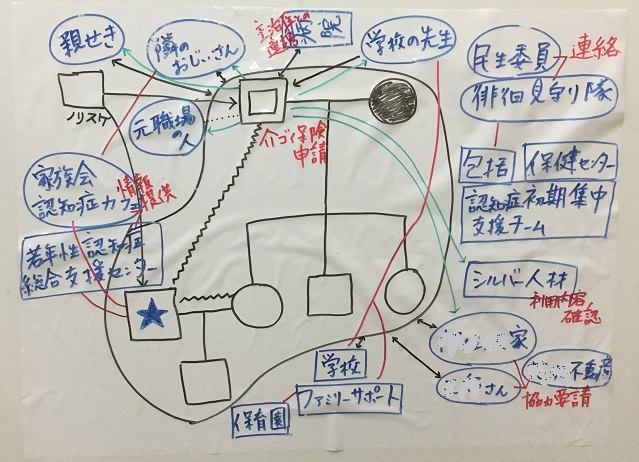 親せき
隣の
おじぃさん
病院
学校の先生
民生委員
連絡
徘徊見守り隊
ノリスケ
元職場
の人
介ゴ保険
申請
包括
保健センター
認知症初期集中
支援チーム
家族会
認知症カフェ
情報
提供
若年性認知症
総合支援センター
シルバー人材
利用内容
確認
家
学校
ファミリーサポート
保育園
さん
不動産
協力要請